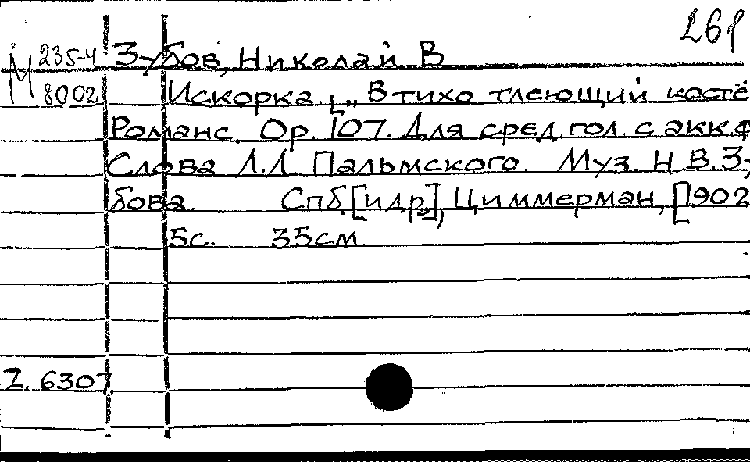 261
М 235-4 Зубов, Николай В
8002 Искорка [„В тихо тлеющий костё
Романс. Ор. 107. Для сред. гол. с акк. ф
Слова Л.Л Пальмского. Муз Н В. Зу
бова. Спб. [и др.], Циммерман, [1902
5с. 35см
Z. 6307